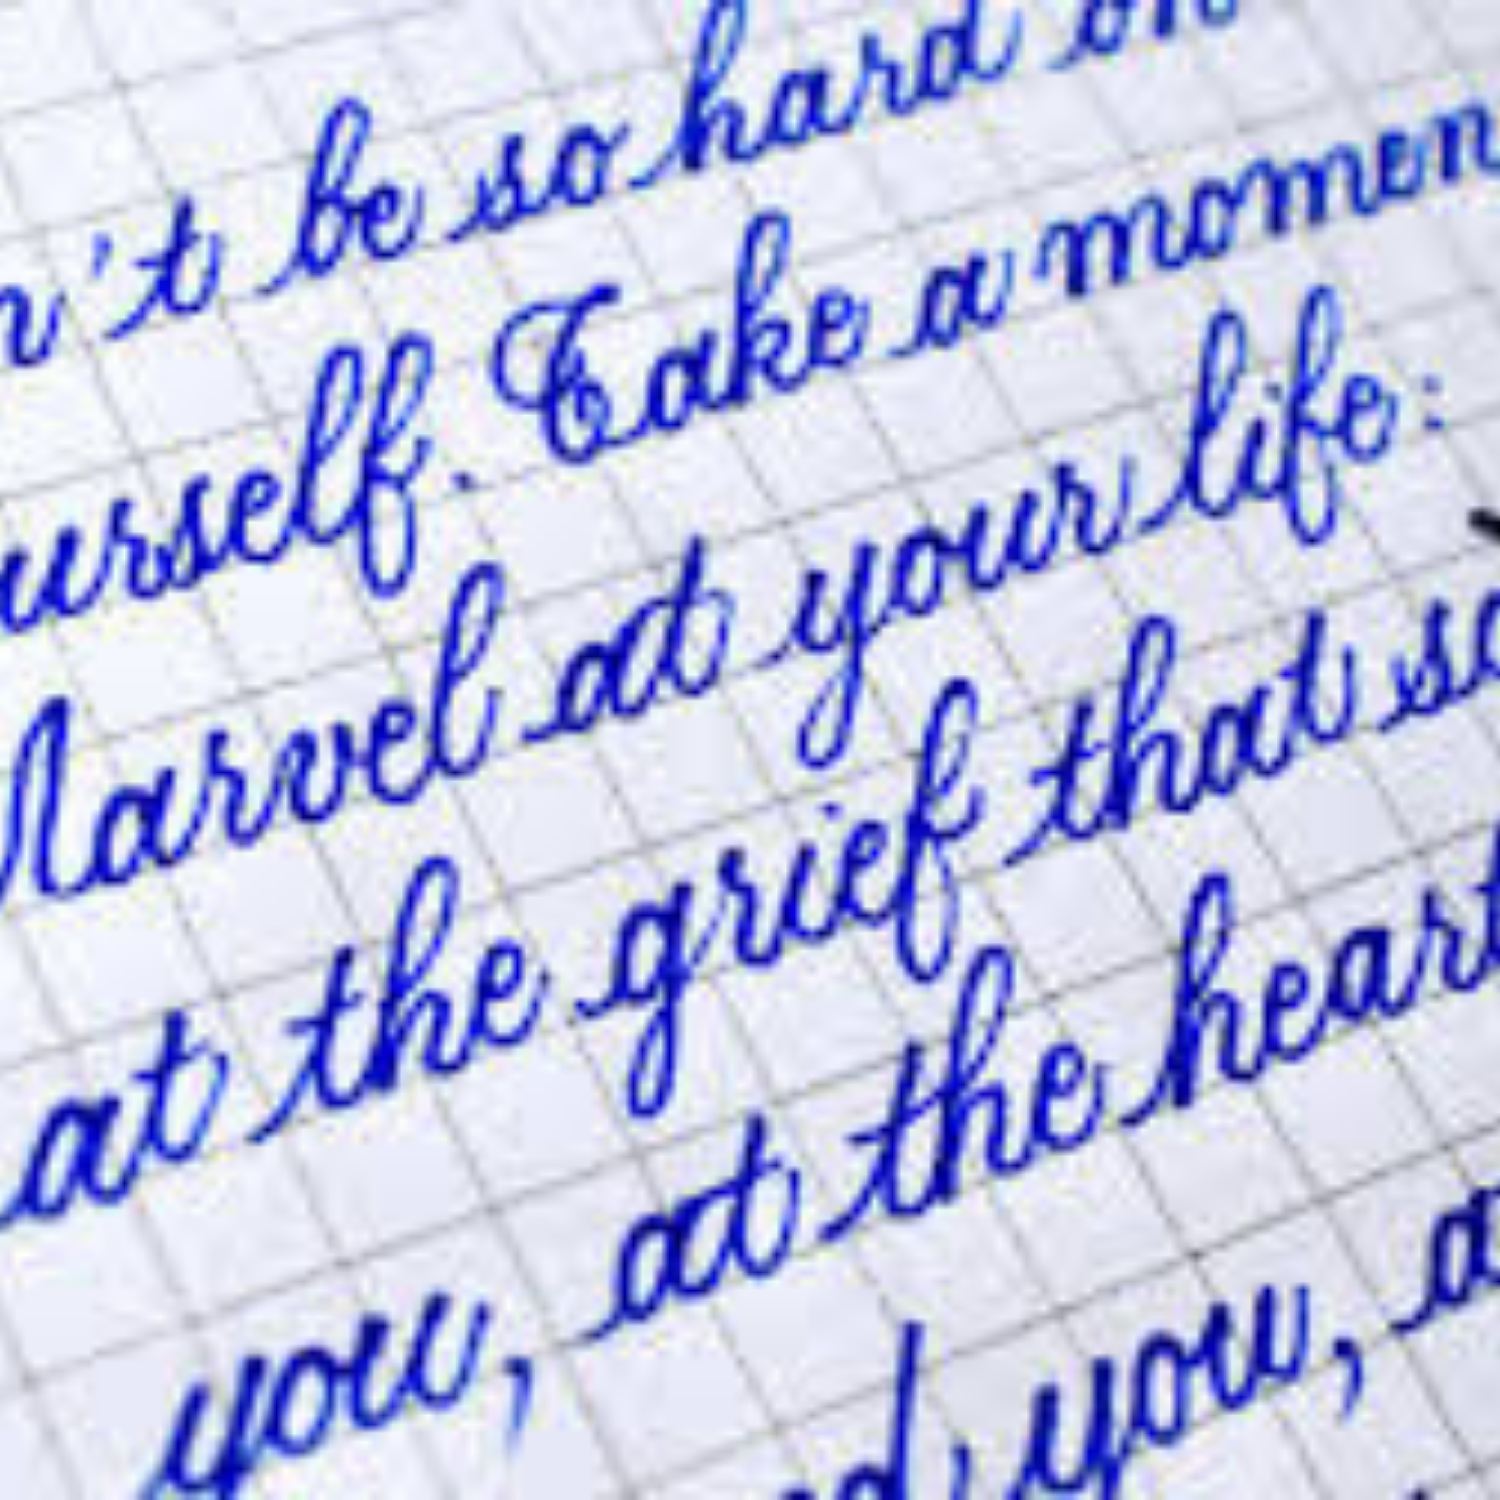 n't be so hard on
urself. Take a momen
Marvel at your life:
at the grief that so
you, at the heart
d you, a